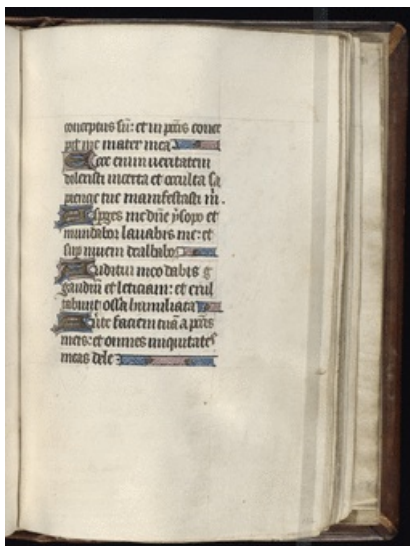 conceptus sū: et in pctīs conce
pit me mater mea
Ecce enim ueritatem
dilexisti incerta et occulta sa
pientie tue manifestasti m̄.
Asperges me dñe ysopo et
mundabor lauabis me: et
sup niuem dealbabor
Auditui meo dabis g
gaudiū et leticiam: et exul
tabunt ossa humiliata
Auerte faciem tuā a pctīs
meis: et omnes iniquitates
meas dele